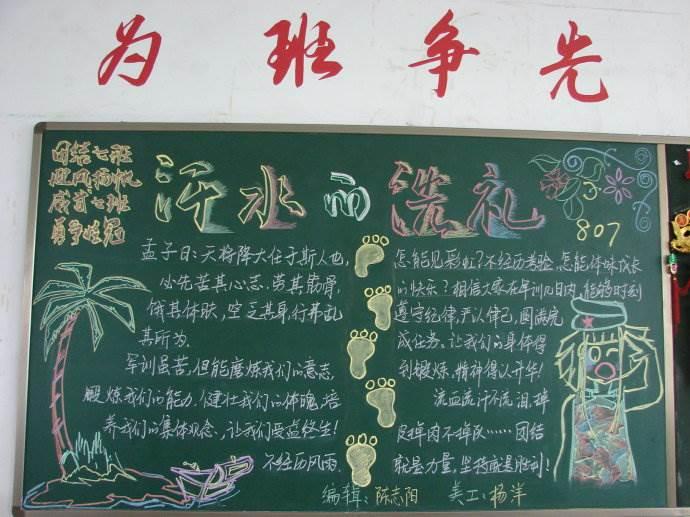 为班争先
团结七班
迎风扬帆
威武七班
勇争桂冠
汗水的洗礼
807
孟子曰:天将降大任于斯人也,
必先苦其心志,劳其筋骨,
饿其体肤,空乏其身,行弗乱
其所为.
军训虽苦,但能磨炼我们的意志,
锻炼我们的能力,健壮我们的体魄,培
养我们的集体观念,让我们受益终生!
不经历风雨.
怎能见彩虹?不经历考验,怎能体味成长
的快乐?相信大家在军训几日内,能够时刻
遵守纪律,严以律己,圆满完
成任务。让我们的身体得
到锻炼,精神得以升华!
流血流汗不流泪,掉
皮掉肉不掉队……团结
就是力量,坚持就是胜利!
编辑:陈志阳 美工:杨洋